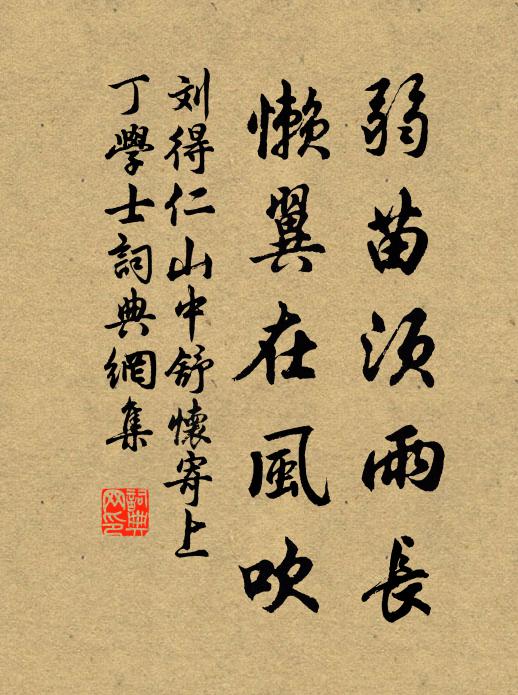 弱苗须雨長
懒翼在風吹
刘得仁山中舒懷寄上
丁學士詞典網集
詞典網印